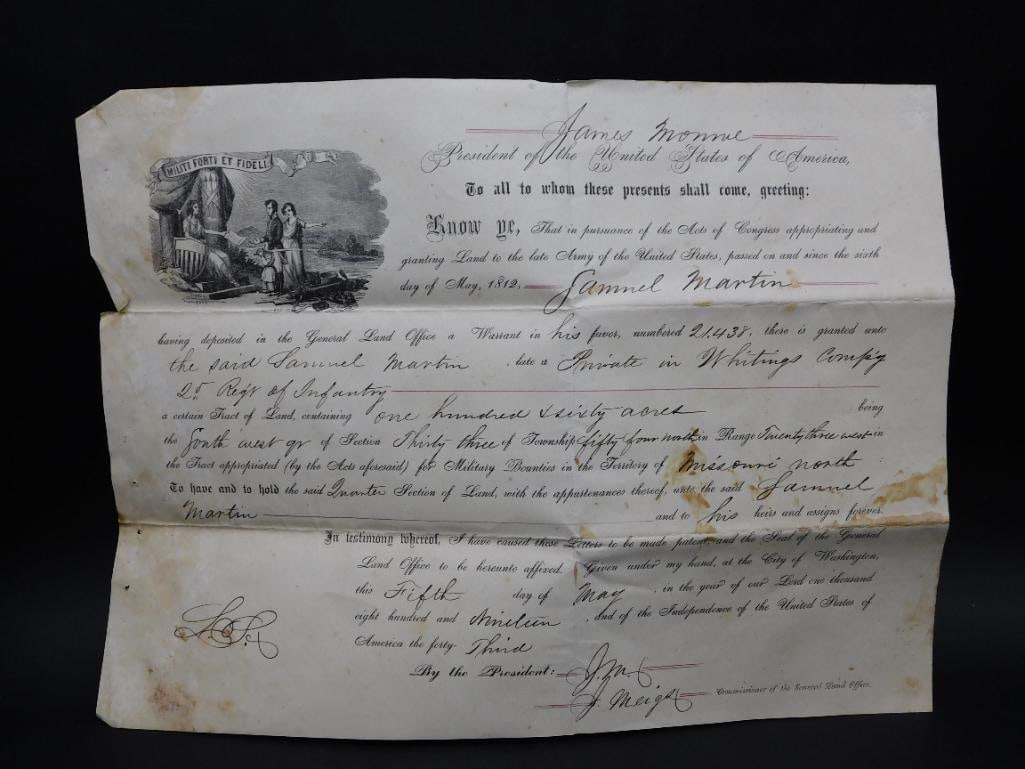 MILITI FORTI ET FIDELI
James Monroe
President of the United States of America,
To all to whom these presents shall come, greeting:
Know ye, That in pursuance of the Acts of Congress appropriating and
granting Land to the late Army of the United States, passed on and since the sixth
day of May, 1812, Samuel Martin
having deposited in the General Land Office a Warrant in his favor, numbered 21.438, there is granted unto
the said Samuel Martin, late a Private in Whitings Compy
25 Regt of Infantry
a certain Tract of Land, containing one hundred & sixty acres being
the South west qr of Section Thirty three of Township fifty four north in Range Twenty three west in
the Tract appropriated (by the Acts aforesaid) for Military Bounties in the Territory of Missouri north :
To have and to hold the said Quarter Section of Land, with the appurtenances thereof, unto the said Samuel
Martin and to his heirs and assigns forever.
In testimony whereof, I have caused these Letters to be made patent, and the Seal of the General
Land Office to be hereunto affixed. Given under my hand, at the City of Washington,
this Fifth day of May, in the year of our Lord one thousand
eight hundred and Nineteen, and of the Independence of the United States of
America the forty- Third
L.S.
By the President: J. M.
J. Meigs Commissioner of the General Land Office.